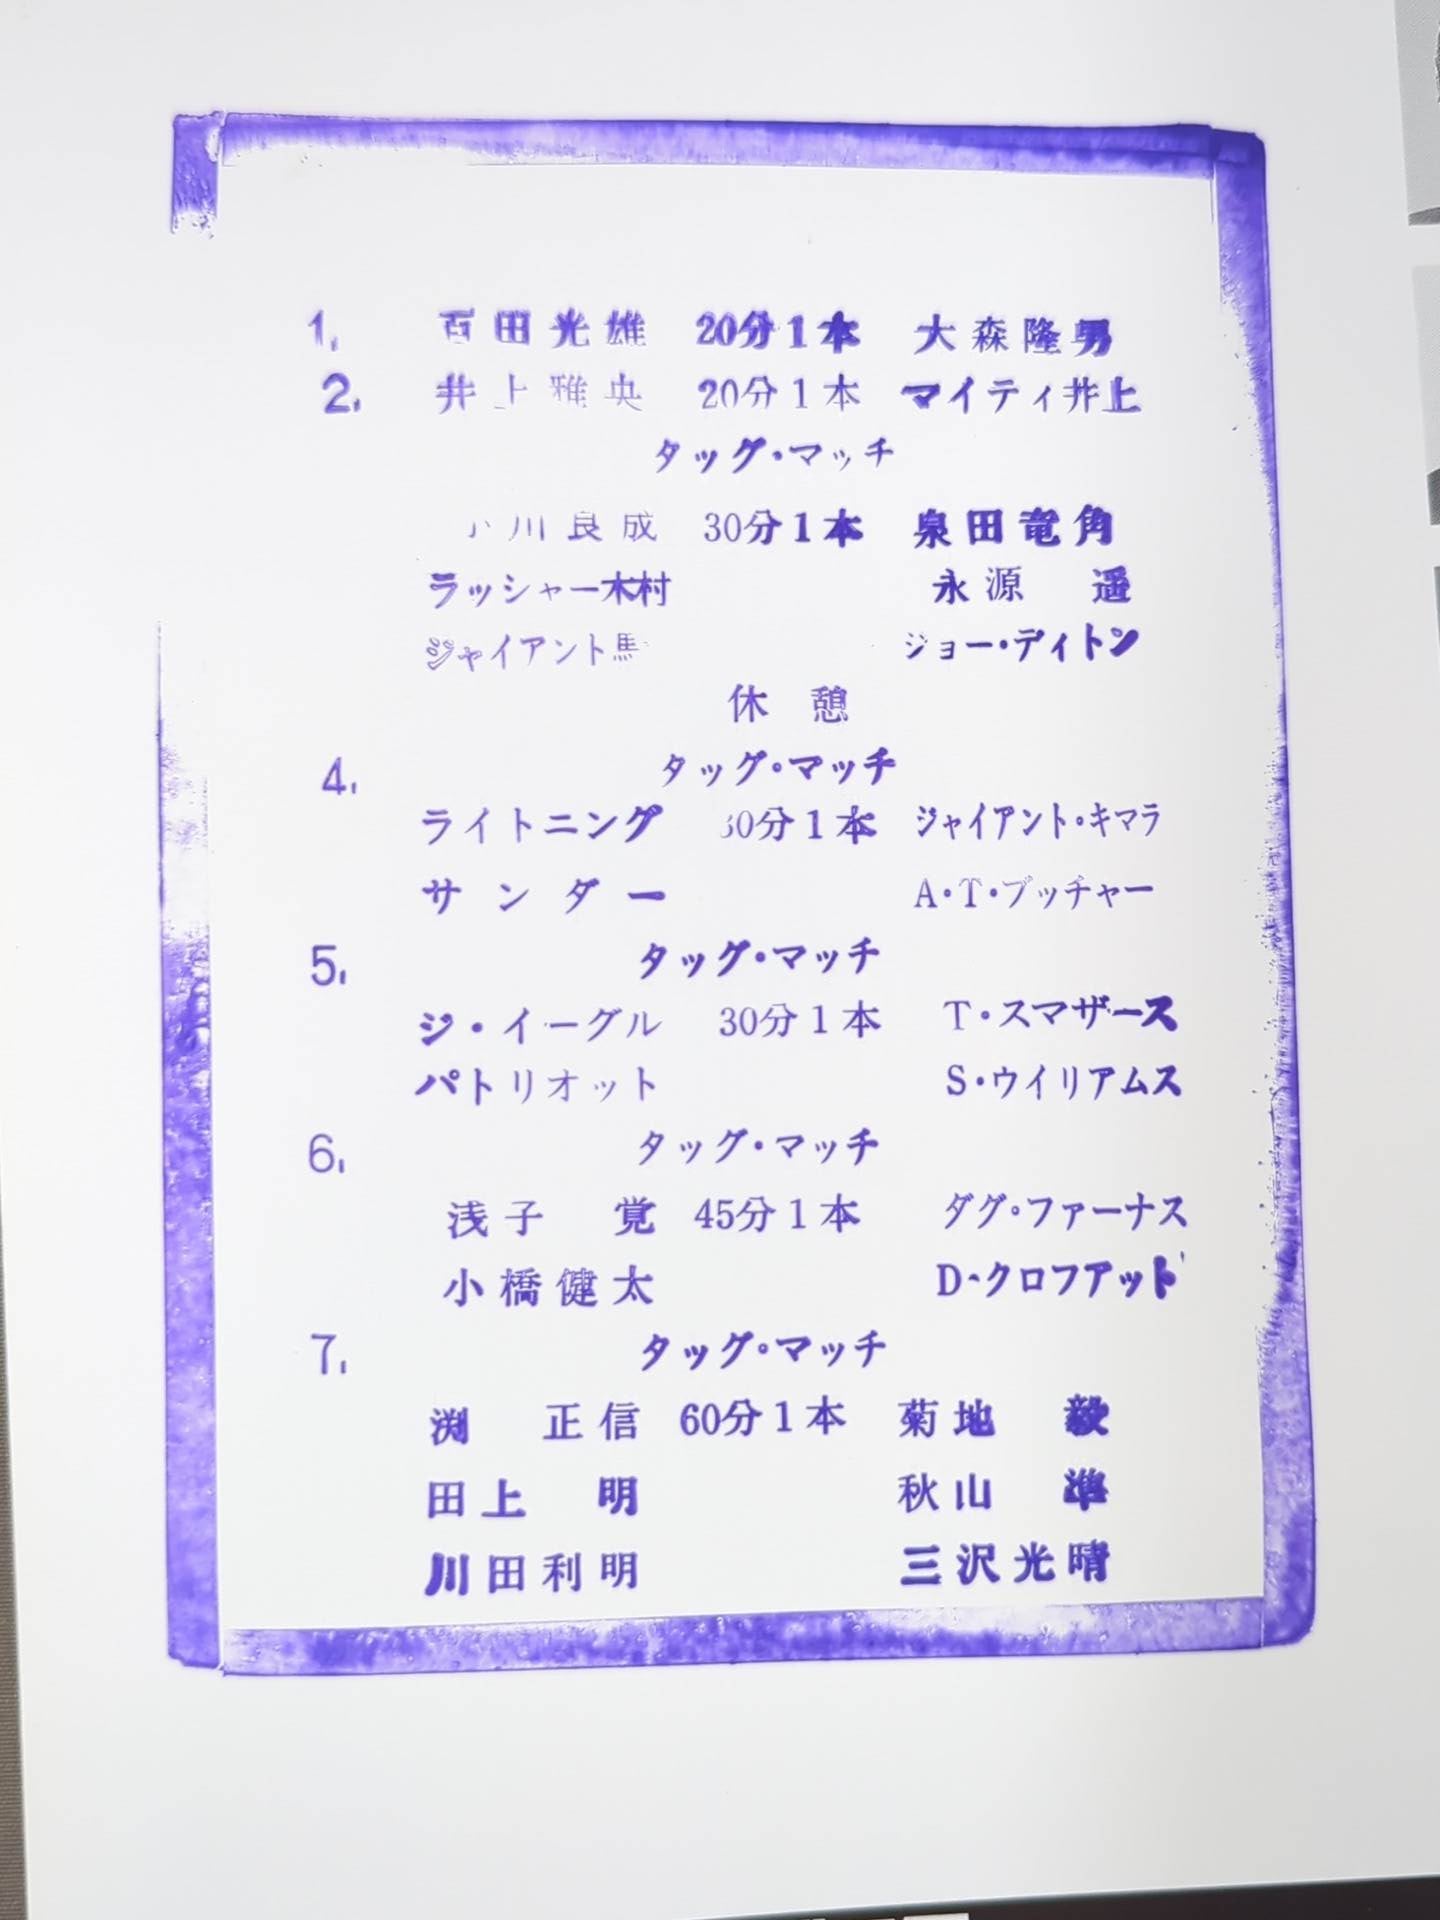 1. 百田光雄 20分1本 大森隆男
2. 井上雅央 20分1本 マイティ井上
タッグ・マッチ
川良成 30分1本 泉田竜角
ラッシャー木村 永源 遥
ジャイアント馬 ジョー・ディトン
休 憩
4. タッグ・マッチ
ライトニング 30分1本 ジャイアント・キマラ
サンダー A・T・ブッチャー
5. タッグ・マッチ
ジ・イーグル 30分1本 T・スマザース
パトリオット S・ウイリアムス
6. タッグ・マッチ
浅子 覚 45分1本 ダグ・ファーナス
小橋健太 D・クロファット
7. タッグ・マッチ
渕 正信 60分1本 菊地 毅
田上 明 秋山 準
川田利明 三沢光晴